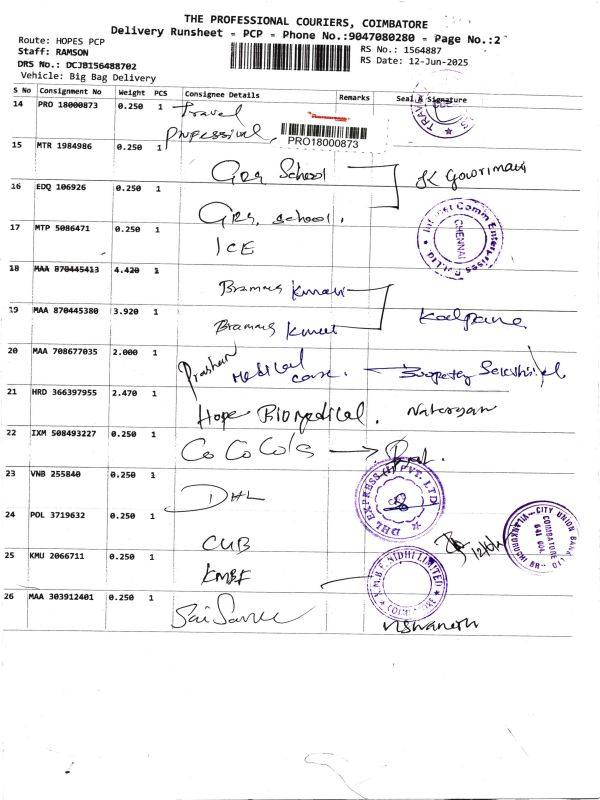 THE PROFESSIONAL COURIERS, COIMBATORE
Delivery Runsheet - PCP - Phone No.:9047080280 - Page No.:2
Route: HOPES PCP
Staff: RAMSON
DRS No.: DCJB156488702
Vehicle: Big Bag Delivery
RS No.: 1564887
RS Date: 12-Jun-2025
S No Consignment No Weight PCS Consignee Details Remarks Seal & Signature
14 PRO 18000873 0.250 1 Travel
Professional
PRO18000873
15 MTR 1984986 0.250 1
GRG School K Gowrimani
16 EDQ 106926 0.250 1
GRG School.
17 MTP 5086471 0.250 1 ICE
Interact Comm Enterprises Pvt.Ltd. CHENNAI
18 MAA 870445413 4.420 1
Bramus Kumar
19 MAA 870445380 3.920 1
Bramus Kalpana
20 MAA 708677035 2.000 1 Prashan
Medical
care.
21 HRD 366397955 2.470 1
Hope Biomedical. Natarajan
22 IXM 508493227 0.250 1
Co Co Cola
23 VNB 255840 0.250 1
DHL
DHL EXPRESS (I) PVT. LTD
24 POL 3719632 0.250 1
CUB
12/6
CITY UNION BANK LTD
COIMBATORE
641 004
25 KMU 2066711 0.250 1
KMBF
K.M.B.F. NIDHI LIMITED
COIMBATORE
26 MAA 303912401 0.250 1
Sai
Vishwanath